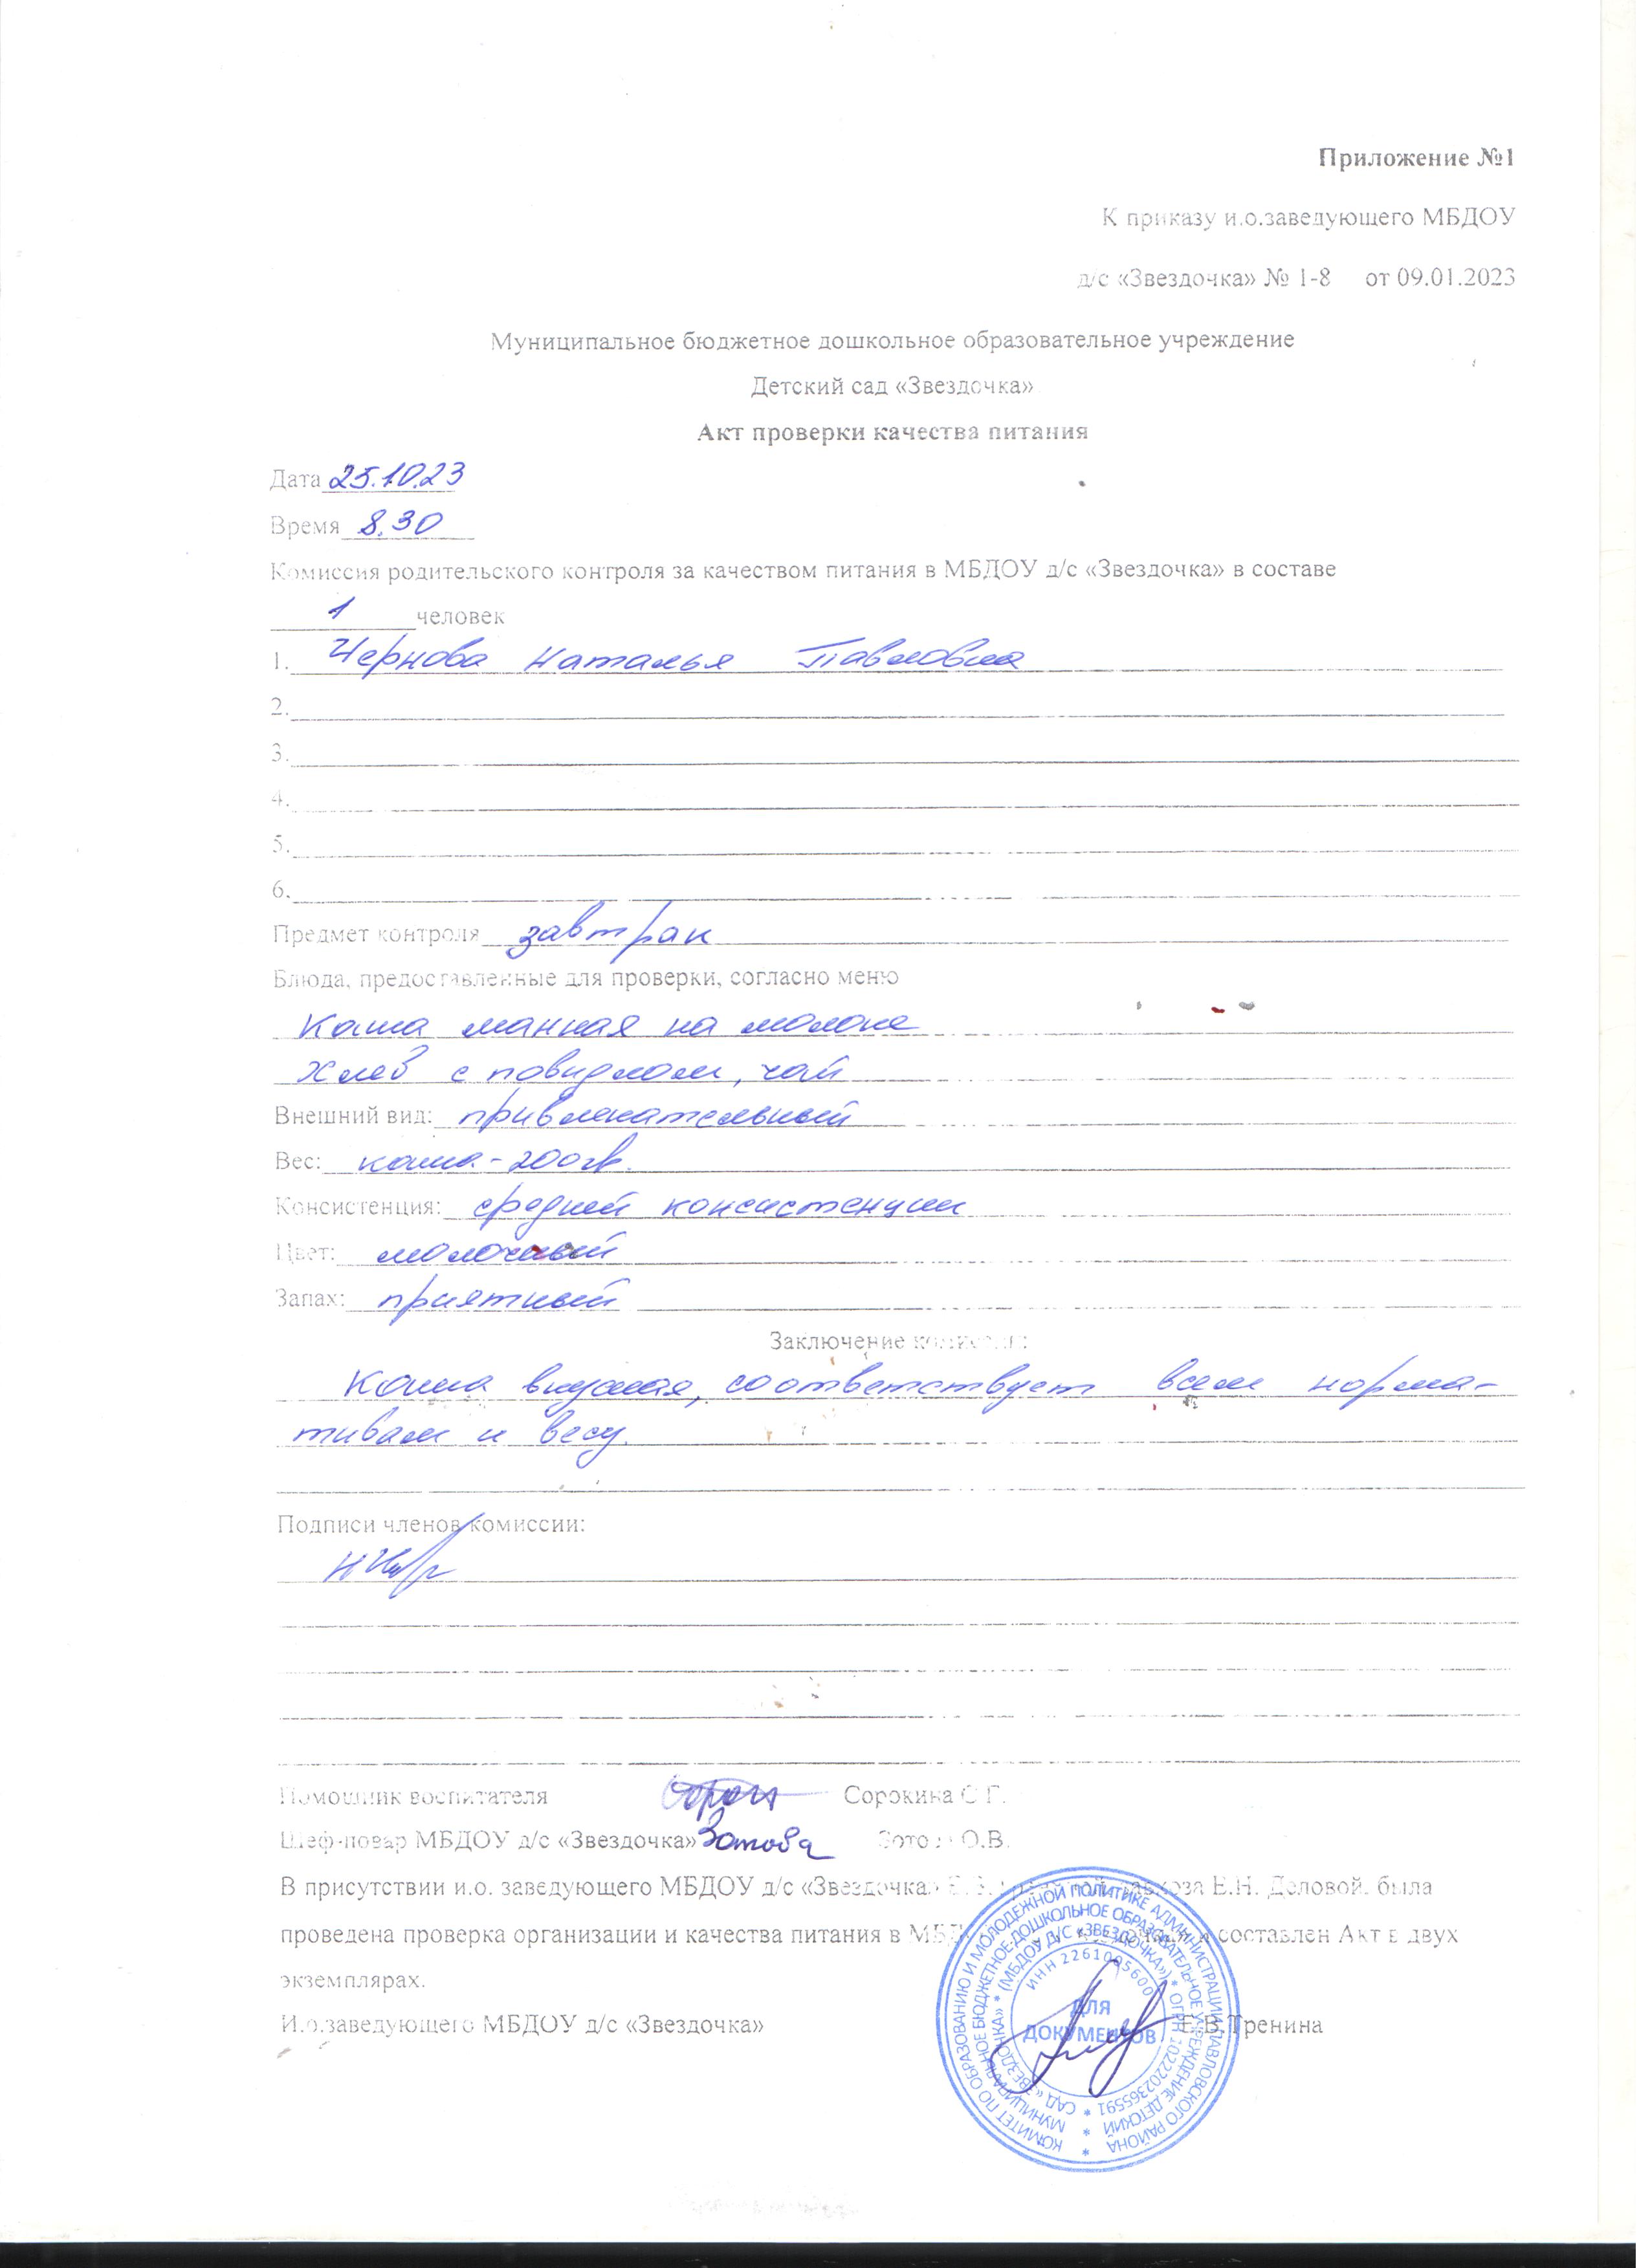 Приложение №1
К приказу и.о.заведующего МБДОУ
д/с «Звездочка» № 1-8 от 09.01.2023
Муниципальное бюджетное дошкольное образовательное учреждение
Детский сад «Звездочка»
Акт проверки качества питания
Дата 25.10.23
Время 8.30
Комиссия родительского контроля за качеством питания в МБДОУ д/с «Звездочка» в составе
1 человек
1. Чернова Наталья Павловна
2.
3.
4.
5.
6.
Предмет контроля завтрак
Блюда, предоставленные для проверки, согласно меню
Каша манная на молоке
Хлеб с повидлом, чай
Внешний вид: привлекательный
Вес: каша - 200гр.
Консистенция: средней консистенции
Цвет: молочный
Запах: приятный
Заключение комиссии:
Каша вкусная, соответствует всем норма-
тивам и весу.
Подписи членов комиссии:
Помощник воспитателя Сорокина С.Г.
Шеф-повар МБДОУ д/с «Звездочка» Зотова Зотова О.В.
В присутствии и.о. заведующего МБДОУ д/с «Звездочка» Е.Н. Деловой, была
проведена проверка организации и качества питания в составлен Акт в двух
экземплярах.
И.о.заведующего МБДОУ д/с «Звездочка» Е.В.Тренина
КОМИТЕТ ПО ОБРАЗОВАНИЮ И МОЛОДЕЖНОЙ ПОЛИТИКЕ АДМИНИСТРАЦИИ ПАВЛОВСКОГО РАЙОНА *
МУНИЦИПАЛЬНОЕ БЮДЖЕТНОЕ ДОШКОЛЬНОЕ ОБРАЗОВАТЕЛЬНОЕ УЧРЕЖДЕНИЕ ДЕТСКИЙ *
САД «ЗВЕЗДОЧКА» * (МБДОУ Д/С «ЗВЕЗДОЧКА») * ОГРН 1022202365591 *
ИНН 2261005600
ДЛЯ
ДОКУМЕНТОВ